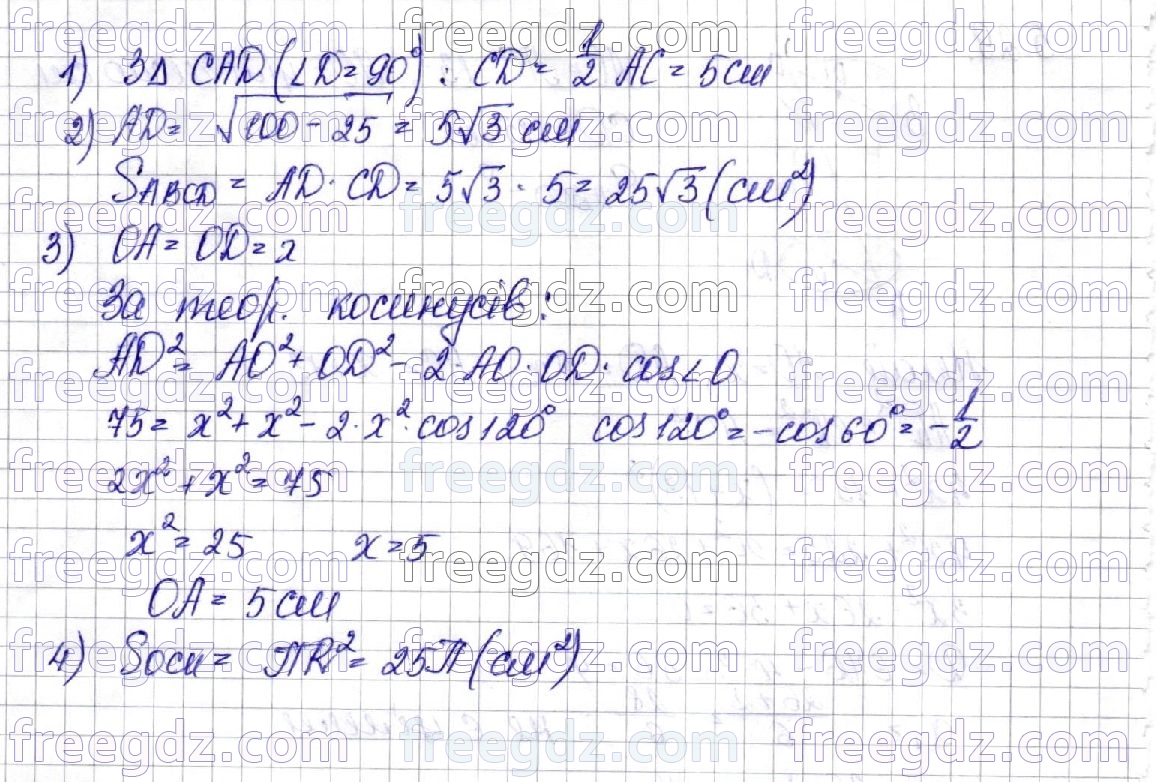 1) З Δ CAD (∠D = 90°) : CD = 1/2 AC = 5 см
2) AD = √(100 - 25) = 5√3 см
S ABCD = AD · CD = 5√3 · 5 = 25√3 (см²)
3) OA = OD = x
За теор. косинусів:
AD² = AO² + OD² - 2 · AO · OD · cos∠O
75 = x² + x² - 2 · x² · cos 120° cos 120° = -cos 60° = -1/2
2x² + x² = 75
x² = 25 x = 5
OA = 5 см
4) Sосн = πR² = 25π (см²)
freegdz.com